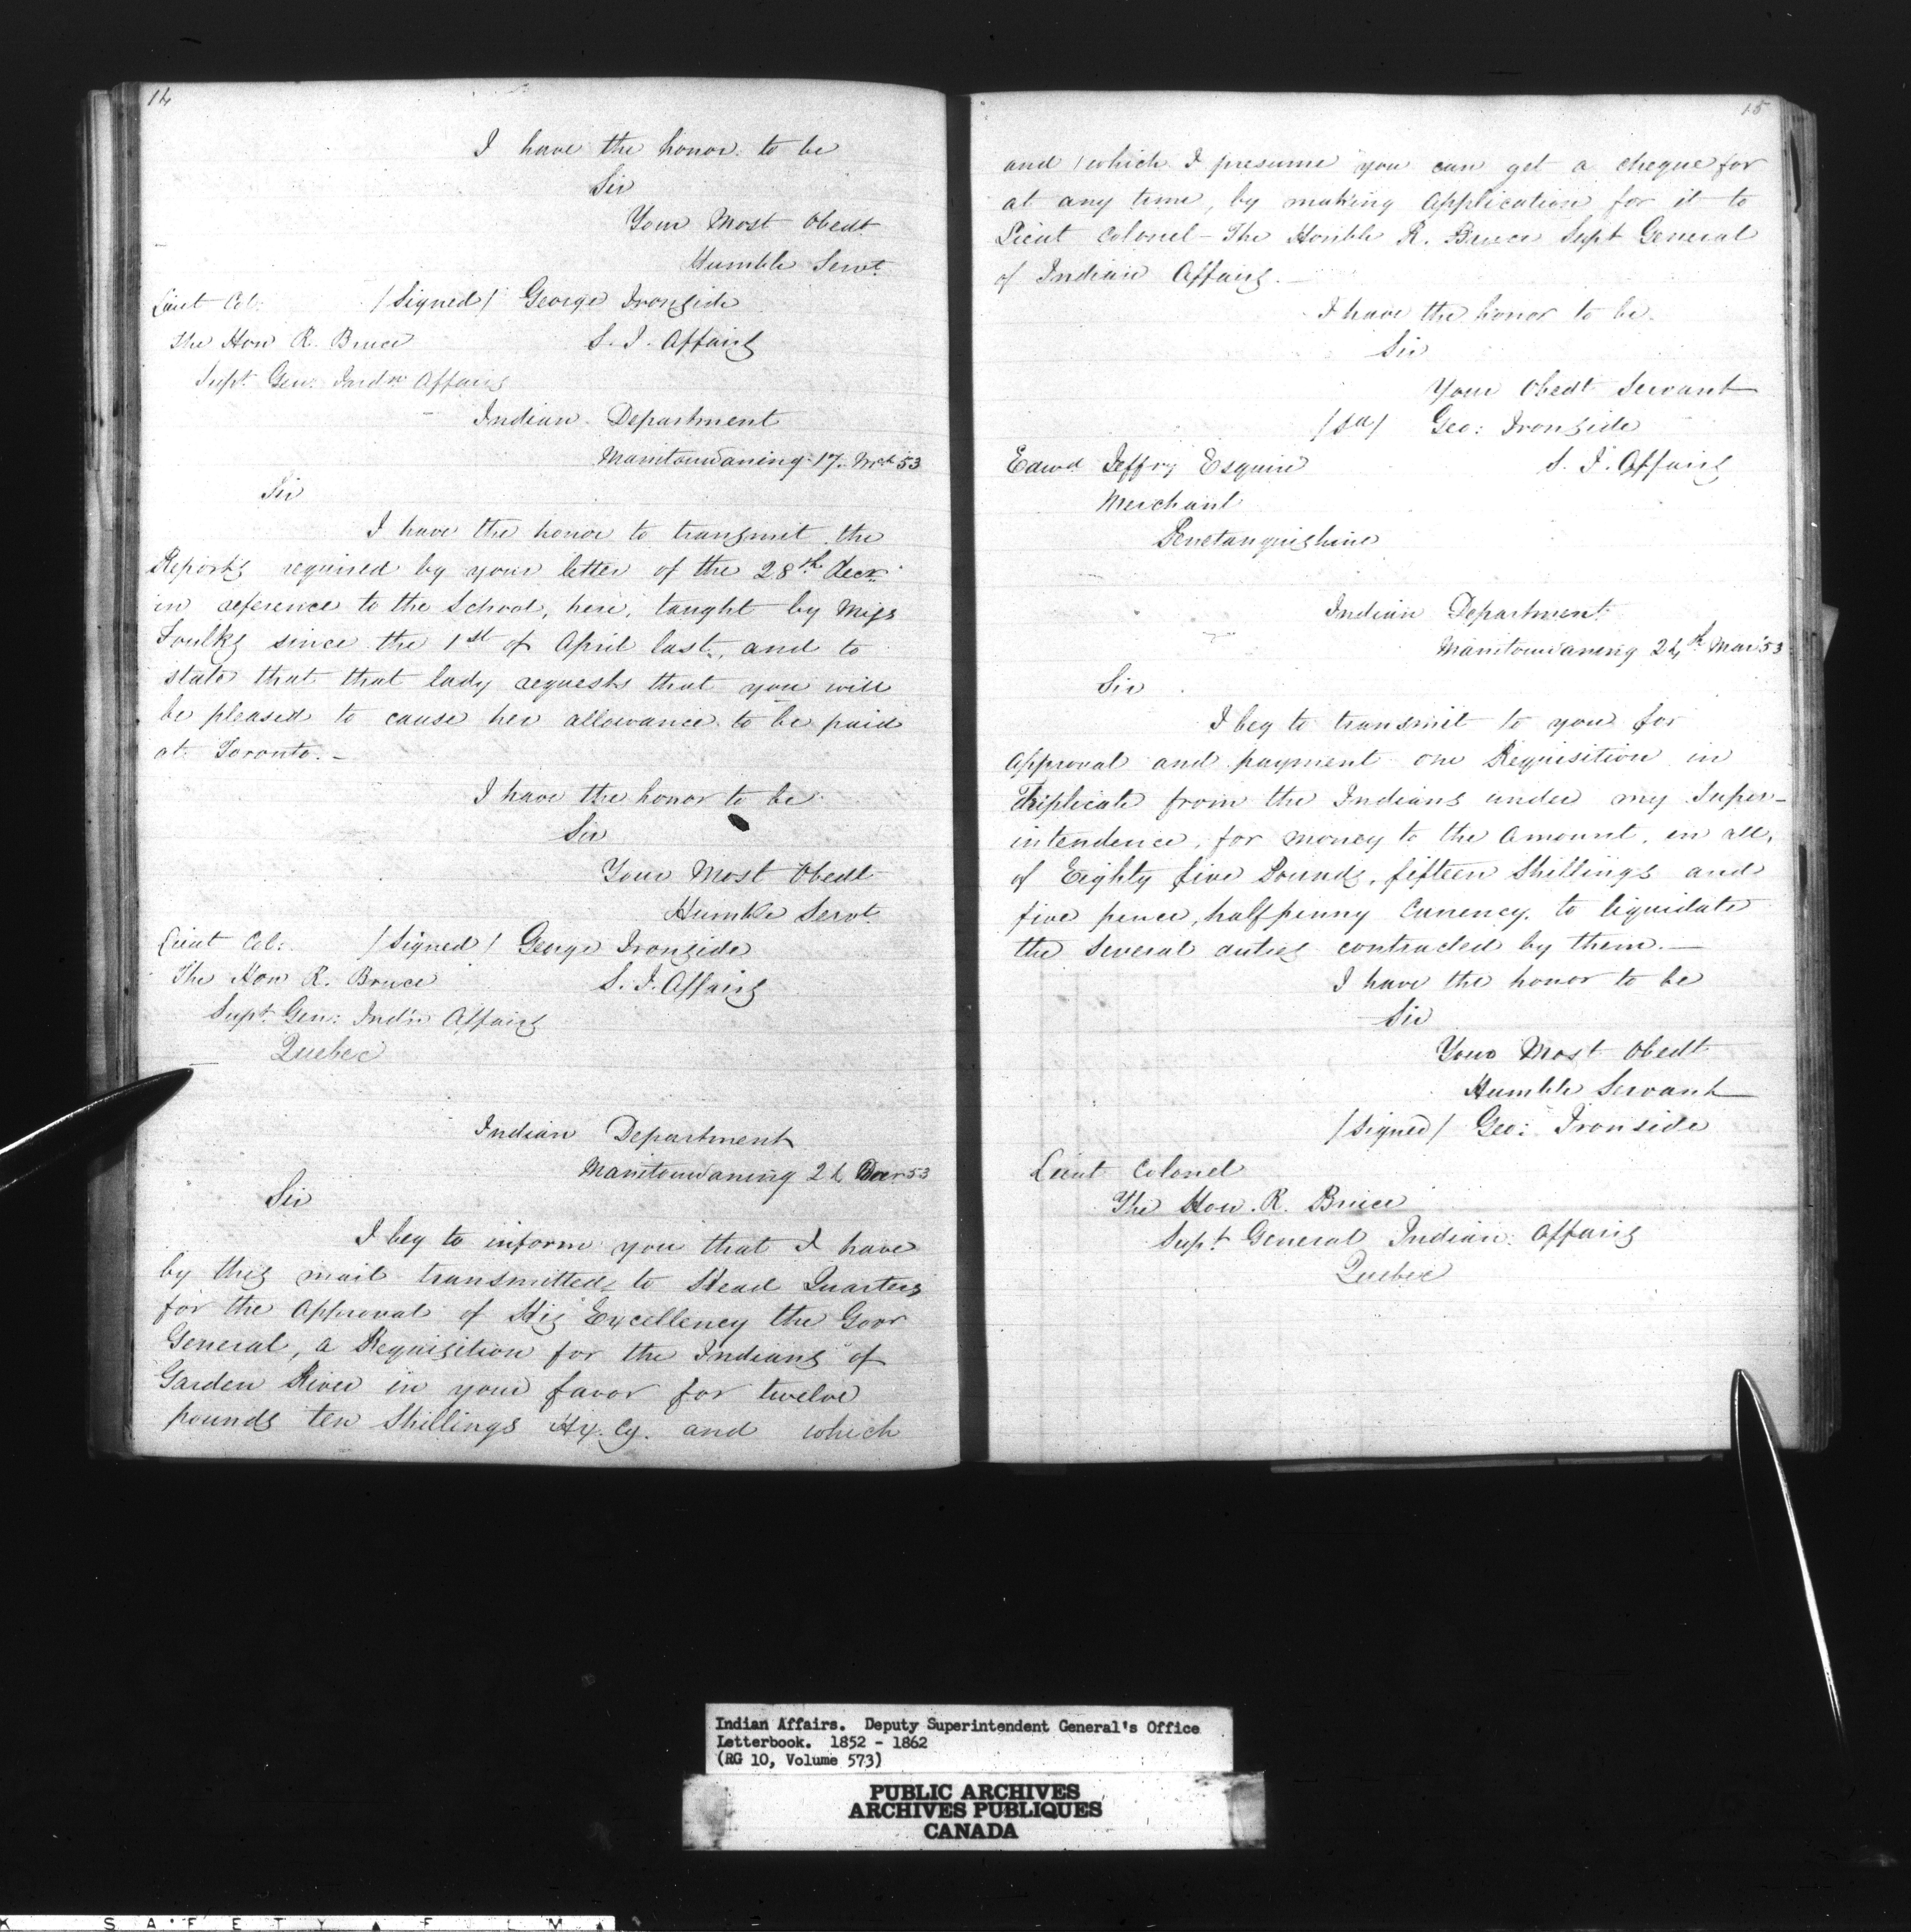 14
I have the honor to be
Sir
Your Most Obedt
Humble Servt
Lieut Col: /Signed/ George Ironside
The Hon R. Bruce S. I. Affairs
Supt Gen: Indn Affairs
Indian Department
Manitowaning 17. Mch 53
Sir
I have the honor to transmit the
Reports required by your letter of the 28th Decr.
in reference to the School, here, taught by Miss
Foulks since the 1st of April last, and to
state that that lady requests that you will
be pleased to cause her allowance to be paid
at Toronto. -
I have the honor to be
Sir
Your Most Obedt
Humble Servt
Lieut Col: /Signed/ George Ironside
The Hon R. Bruce S. I. Affairs
Supt Gen: Indn Affairs
Quebec
Indian Department
Manitowaning 24 53
Sir
I beg to inform you that I have
by this mail transmitted to Head Quarters
for the Approval of His Excellency the Govr
General, a Requisition for the Indians of
Garden River in your favor for twelve
pounds ten Shillings Hx. Cy. and which
15
and which I presume you can get a cheque for
at any time, by making Application for it to
Lieut Colonel - The Honble R. Bruce Supt General
of Indian Affairs. -
I have the honor to be.
Sir
Your Obedt Servant
/Sd/ Geo: Ironside
Edwd Jeffry Esquire S. I. Affairs
Merchant
Penetanguishine
Indian Department
Manitowaning 24th Mar 53
Sir
I beg to transmit to you for
Approval and payment one Requisition in
Triplicate from the Indians under my Super-
intendence, for money to the Amount, in all,
of Eighty five Pounds, fifteen Shillings and
five pence, halfpenny Currency, to liquidate
the Several contracted by them. -
I have the honor to be
Sir
Your Most Obedt
Humble Servant
/Signed/ Geo: Ironside
Lieut Colonel
The Hon. R. Bruce
Supt General Indian Affairs
Quebec
Indian Affairs. Deputy Superintendent General's Office
Letterbook. 1852 - 1862
(RG 10, Volume 573)
PUBLIC ARCHIVES
ARCHIVES PUBLIQUES
CANADA
SAFETY FILM